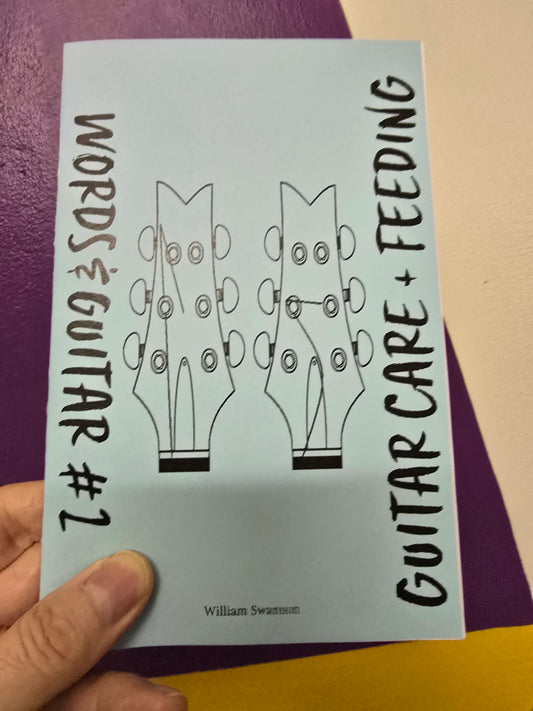 WORDS & GUITAR #2
GUITAR CARE + FEEDING
William Swanson